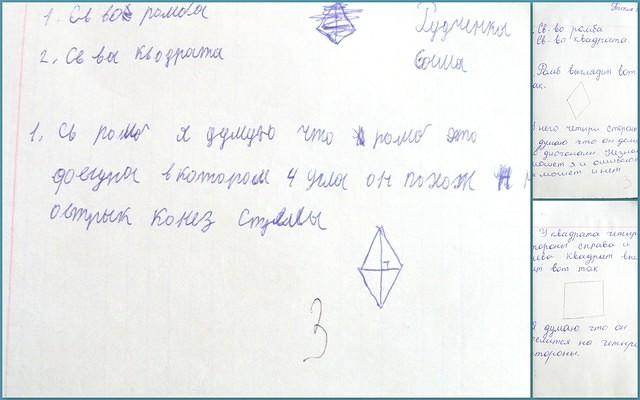 1. Св во ромба
2. Св ва кводрата
Рудченки
Саша
1. Св ромб я думую что ромб это
фегура в котором 4 угла он похож н
острык конез стрелы
3
Св-во ромба
Св-во квадрата.
Ромб выглядит вот
ак.
него четыре сторон
думаю что он дели
диогонали. Незна
может я и ошибаюс
а может и нет
3
У квадрата четыре
тороны справа и
лева квадрат выг
ит вот так
Я думаю что он
делится на четыре
стороны.